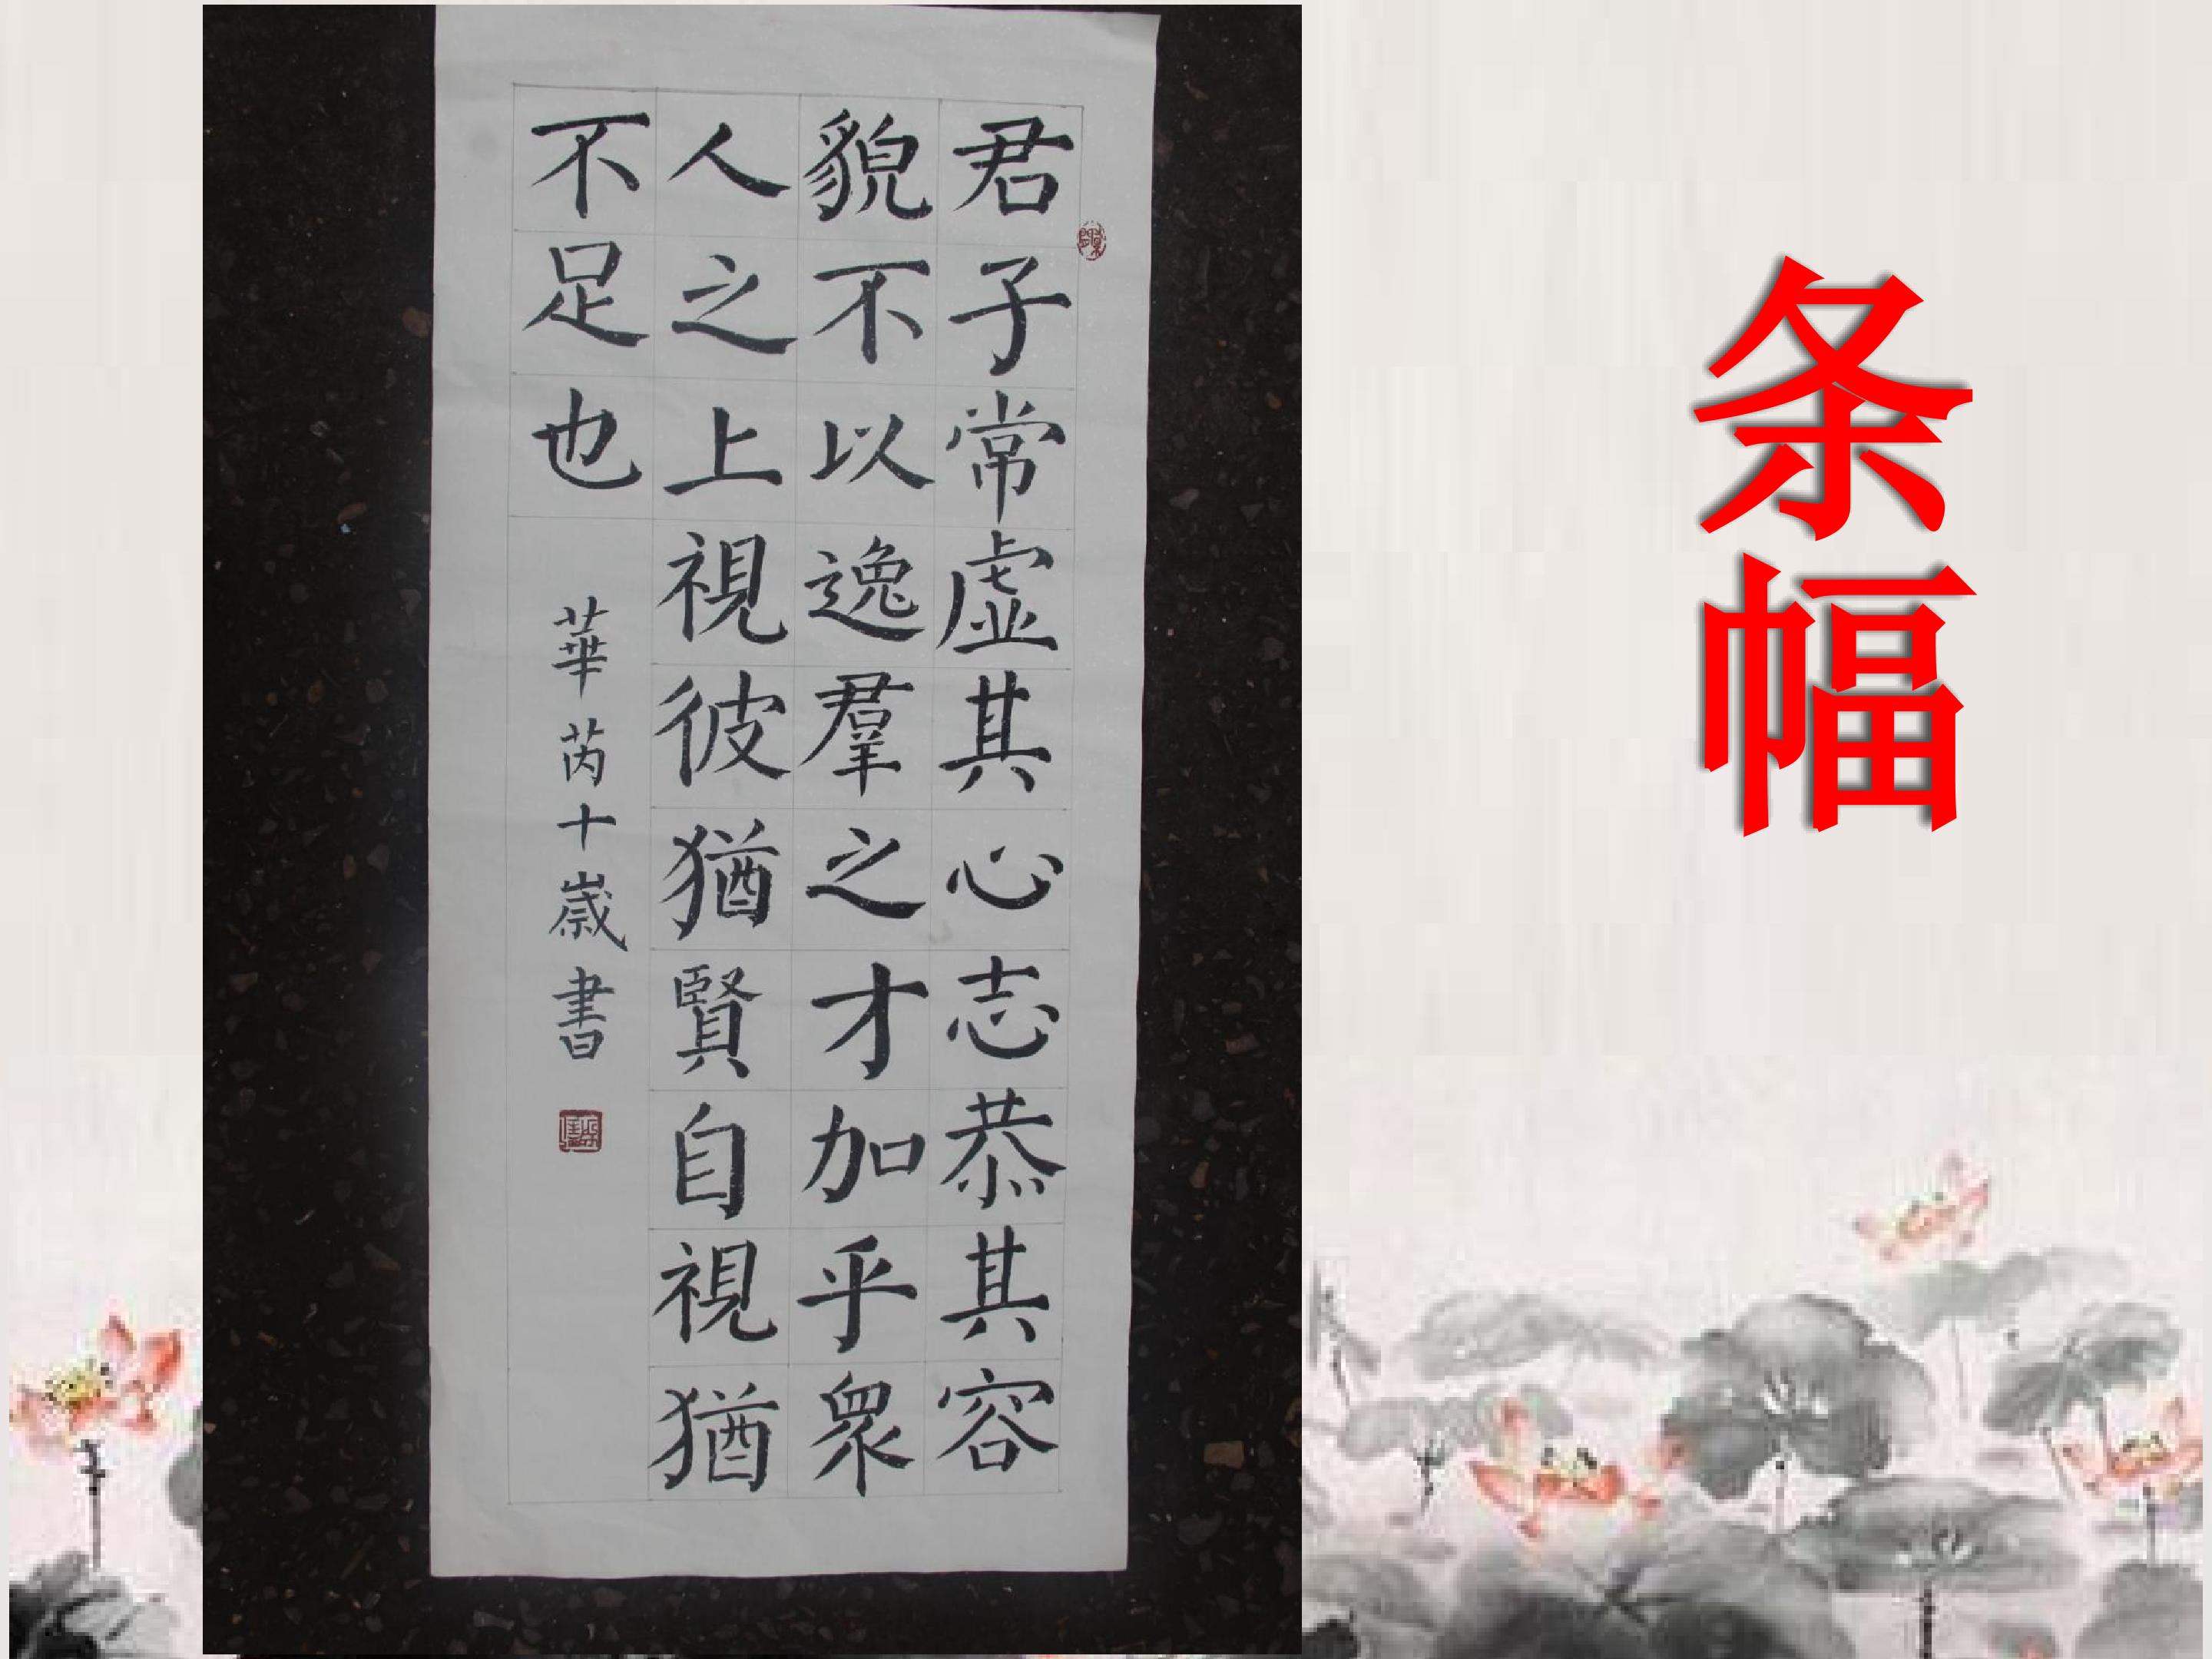 君子常虛其心志恭其容
貌不以逸羣之才加乎衆
人之上視彼猶賢自視猶
不足也
華芮十歲書
条幅